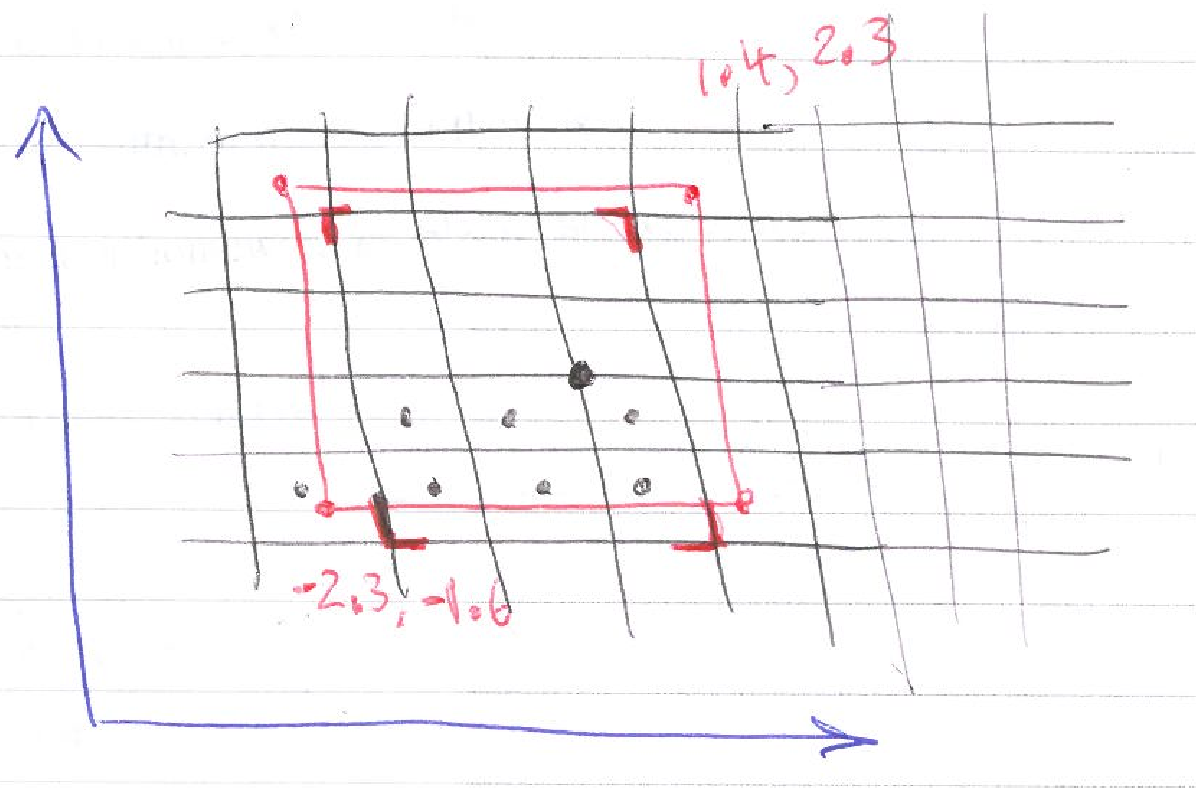 1.4, 2.3
-2.3, -1.6